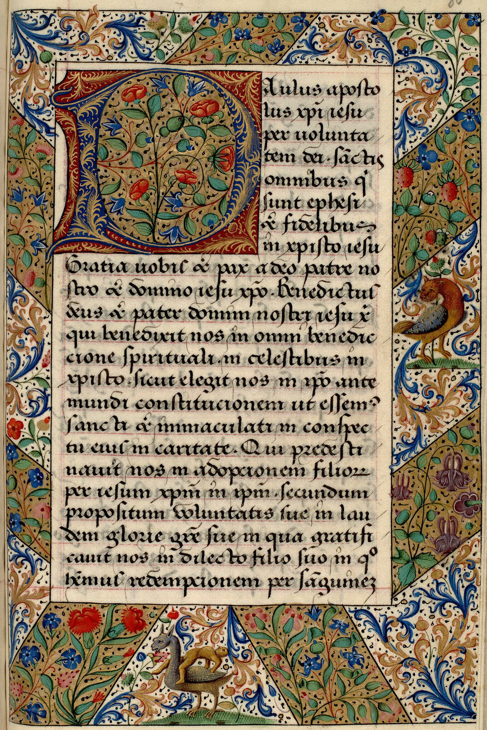 Paulus aposto
lus xpi iesu
per uolunta
tem dei. sāctis
omnibus q̇
sunt ephesi
& fidelibus
in xpisto iesu
Gratia uobis & pax a deo patre no
stro & domino iesu xpo. Benedictus
deus & pater domini nostri iesu x̄
qui benedixit nos in omni benedic
cione spirituali in celestibus in
xpisto. sicut elegit nos in ip̄o ante
mundi constitucionem ut essem⁹
sancti & immaculati in conspec
tu eius in caritate. Qui predesti
nauit nos in adopcionem filiorꝝ
per iesum xpm̄ in ip̄m. secundum
propositum uoluntatis sue in lau
dem glorie grē sue in qua gratifi
cauit nos in dilecto filio suo in q°
hēmus redempcionem per sāguinez